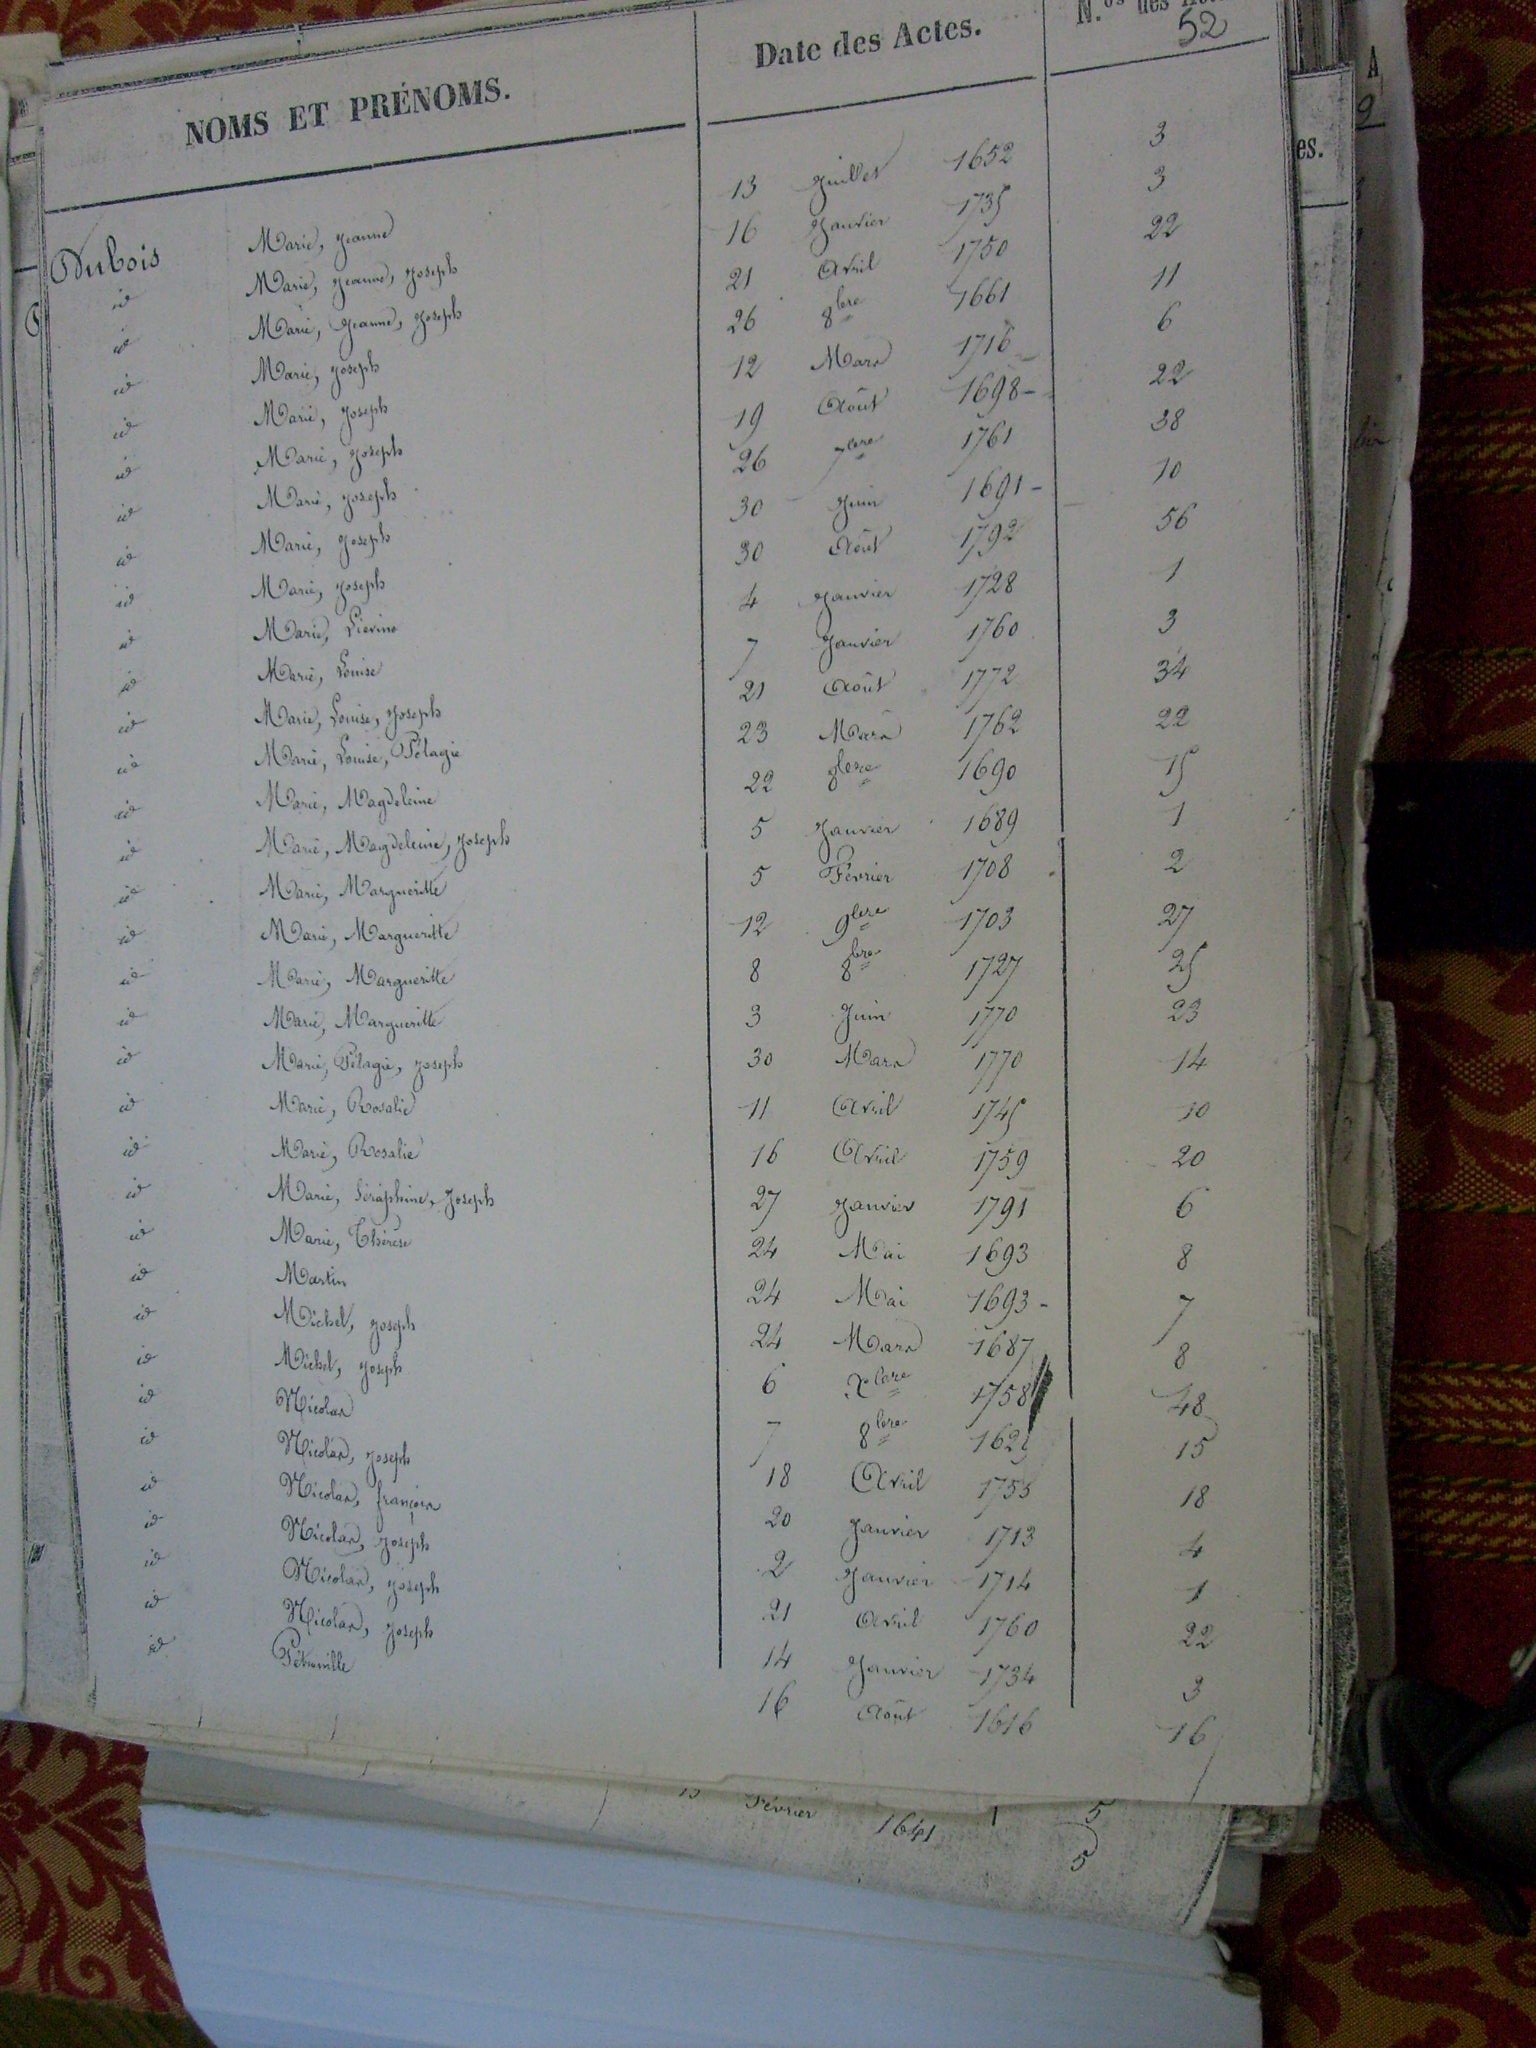 NOMS ET PRÉNOMS. Date des Actes. N.os des
52
Dubois Marie, Jeanne 13 Juillet 1652 3
id Marie, Jeanne, Joseph 16 Janvier 1735 3
id Marie, Jeanne, Joseph 21 Avril 1750 22
id Marie, Joseph 26 8bre 1661 11
id Marie, Joseph 12 Mars 1716 6
id Marie, Joseph 19 Août 1698 - 22
id Marie, Joseph 26 7bre 1761 38
id Marie, Joseph 30 Juin 1691 - 10
id Marie, Joseph 30 Août 1792 56
id Marie, Lievine 4 Janvier 1728 1
id Marie, Louise 7 Janvier 1760 3
id Marie, Louise, Joseph 21 Août 1772 34
id Marie, Louise, Pélagie 23 Mars 1762 22
id Marie, Magdeleine 22 8bre 1690 15
id Marie, Magdeleine, Joseph 5 Janvier 1689 1
id Marie, Margueritte 5 Février 1708 2
id Marie, Margueritte 12 9bre 1703 27
id Marie, Margueritte 8 8bre 1727 25
id Marie, Margueritte 3 Juin 1770 23
id Marie, Pélagie, Joseph 30 Mars 1770 14
id Marie, Rosalie 11 Avril 1745 10
id Marie, Rosalie 16 Avril 1759 20
id Marie, Séraphine, Joseph 27 Janvier 1791 6
id Marie, Thérèse 24 Mai 1693 8
id Martin 24 Mai 1693 - 7
id Michel, Joseph 24 Mars 1687 8
id Michel, Joseph 6 Xbre 1758 48
id Nicolas 7 8bre 15
id Nicolas, Joseph 18 Avril 1755 18
id Nicolas, françois 20 Janvier 1713 4
id Nicolas, Joseph 2 Janvier 1714 1
id Nicolas, Joseph 21 Avril 1760 22
id Nicolas, Joseph 14 Janvier 1734 3
id Pétronille 16 Août 1616 16
Février 1641 5
5
A
9
es.